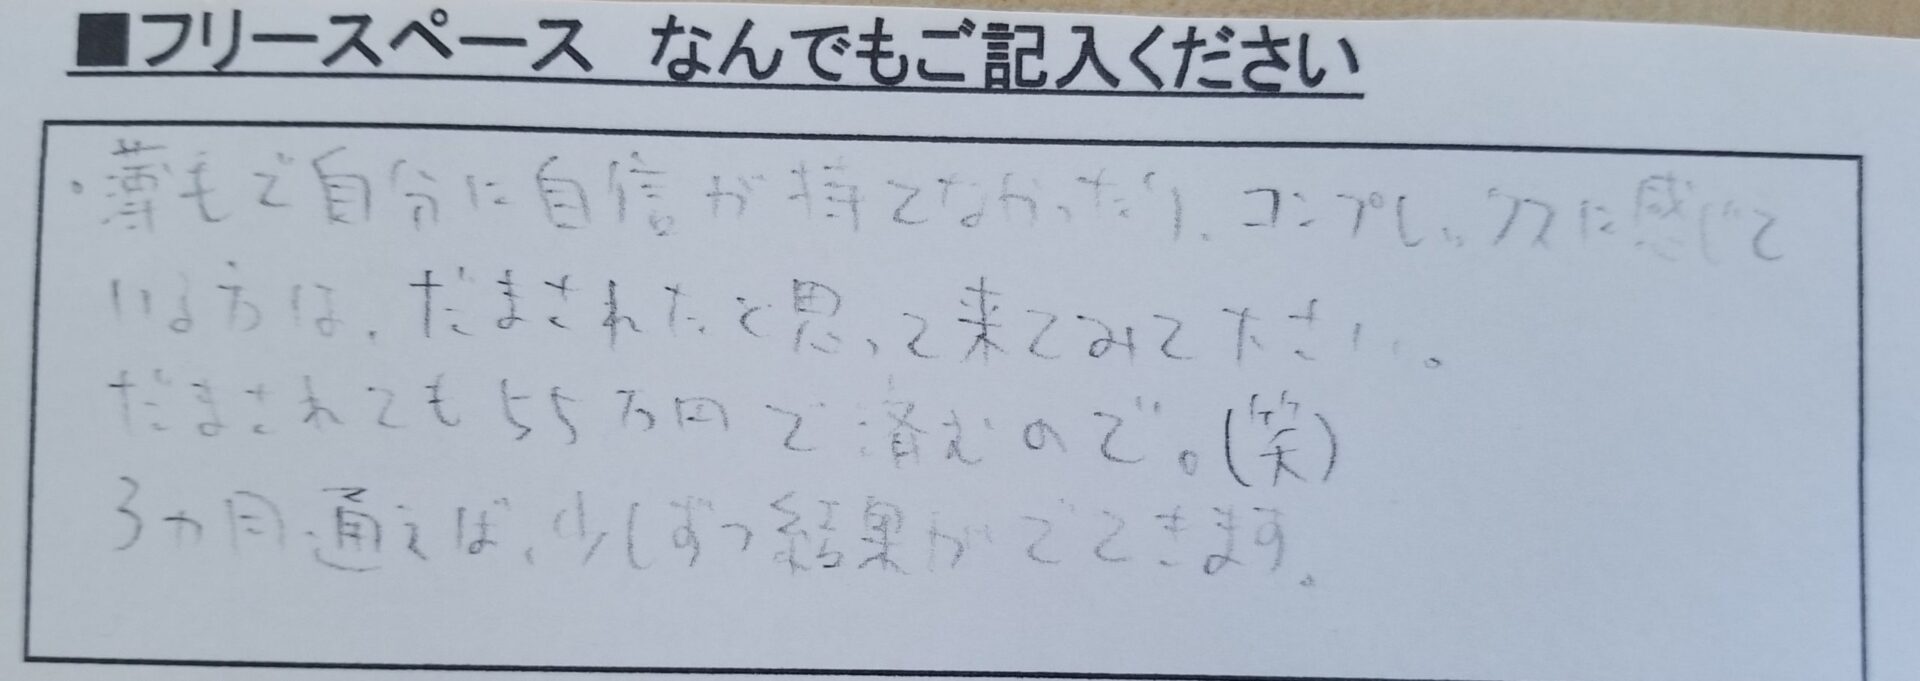 ■フリースペース なんでもご記入ください
・薄毛で自分に自信が持てなかったり、コンプレックスに感じて
いる方は、だまされたと思って来てみて下さい。
だまされても55万円で済むので。(笑)
3ヵ月通えば、少しずつ結果がでてきます。